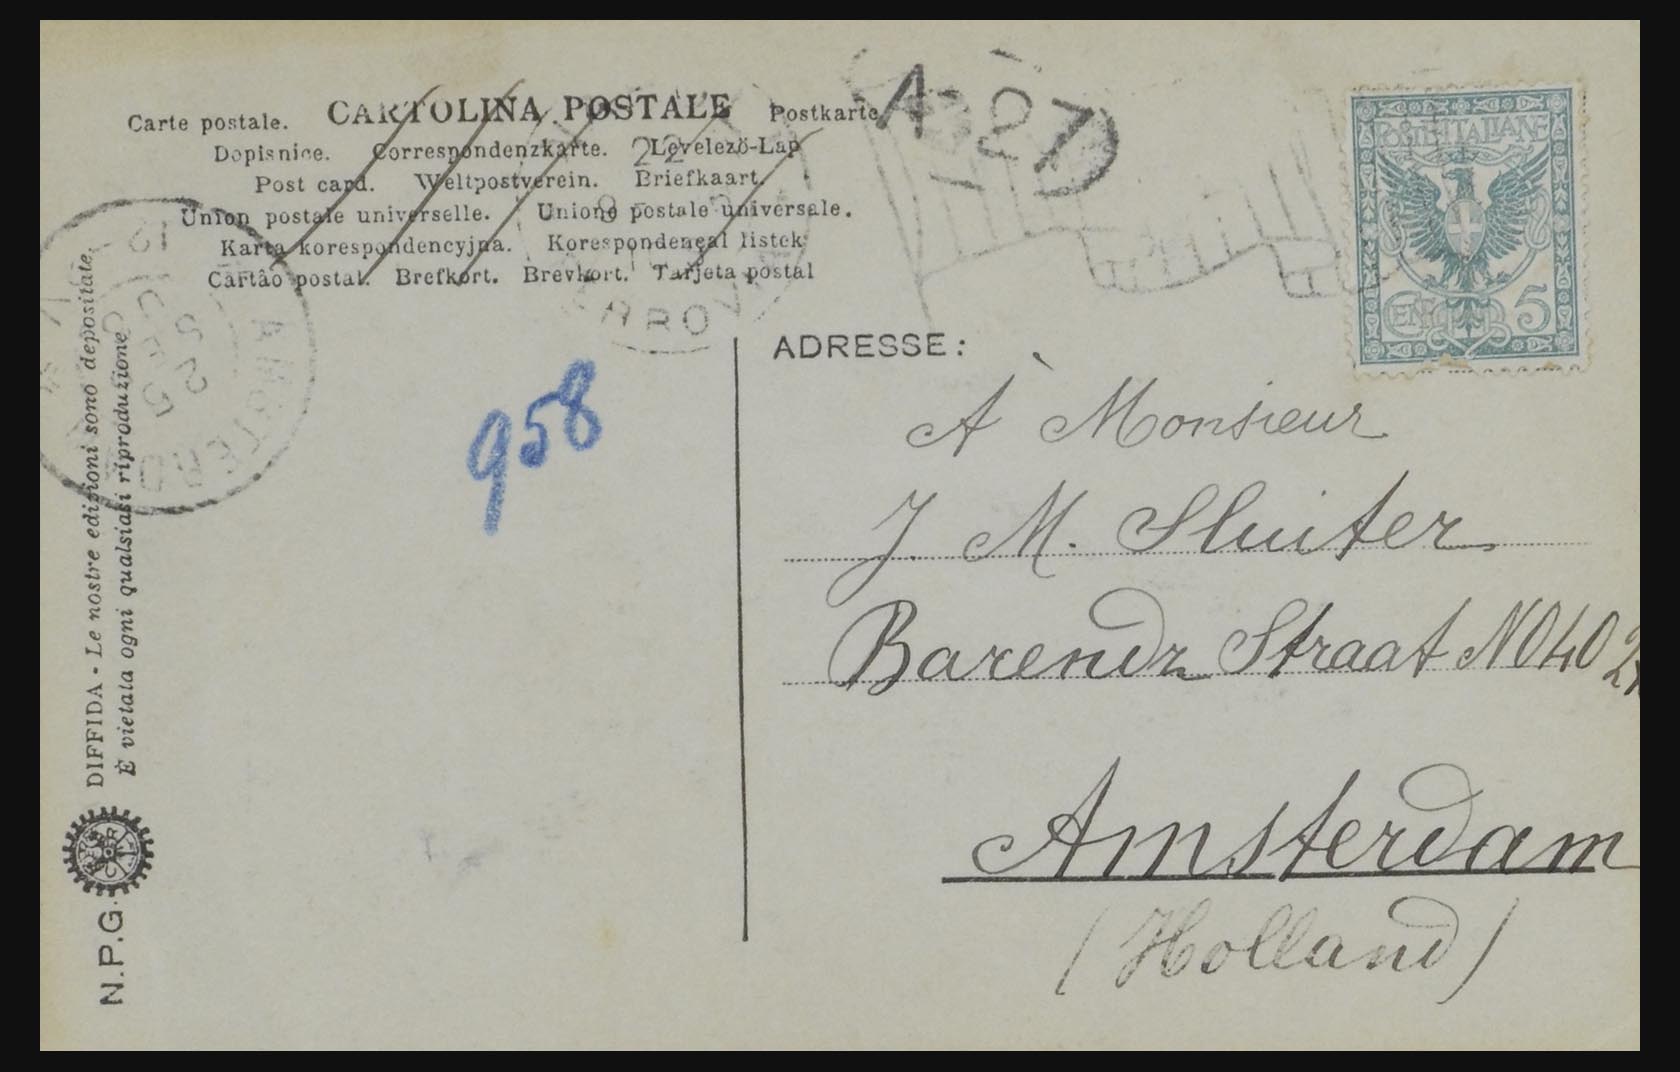 Carte postale. CARTOLINA POSTALE Postkarte
Dopisnice. Correspondenzkarte. Levelező-Lap
Post card. Weltpostverein. Briefkaart.
Union postale universelle. Unione postale universale.
Karta korespondencyjna. Korespondencăl listek
Cartâo postal. Brefkort. Brevkort. Tarjeta postal
A-27D
22
POSTE ITALIANE
CENT 5
DIFFIDA - Le nostre edizioni sono depositate.
È vietata ogni qualsiasi riproduzione
N.P.G.
958
ADRESSE:
À Monsieur
J. M. Sluiter
Barendz Straat No 40
Amsterdam
(Holland)